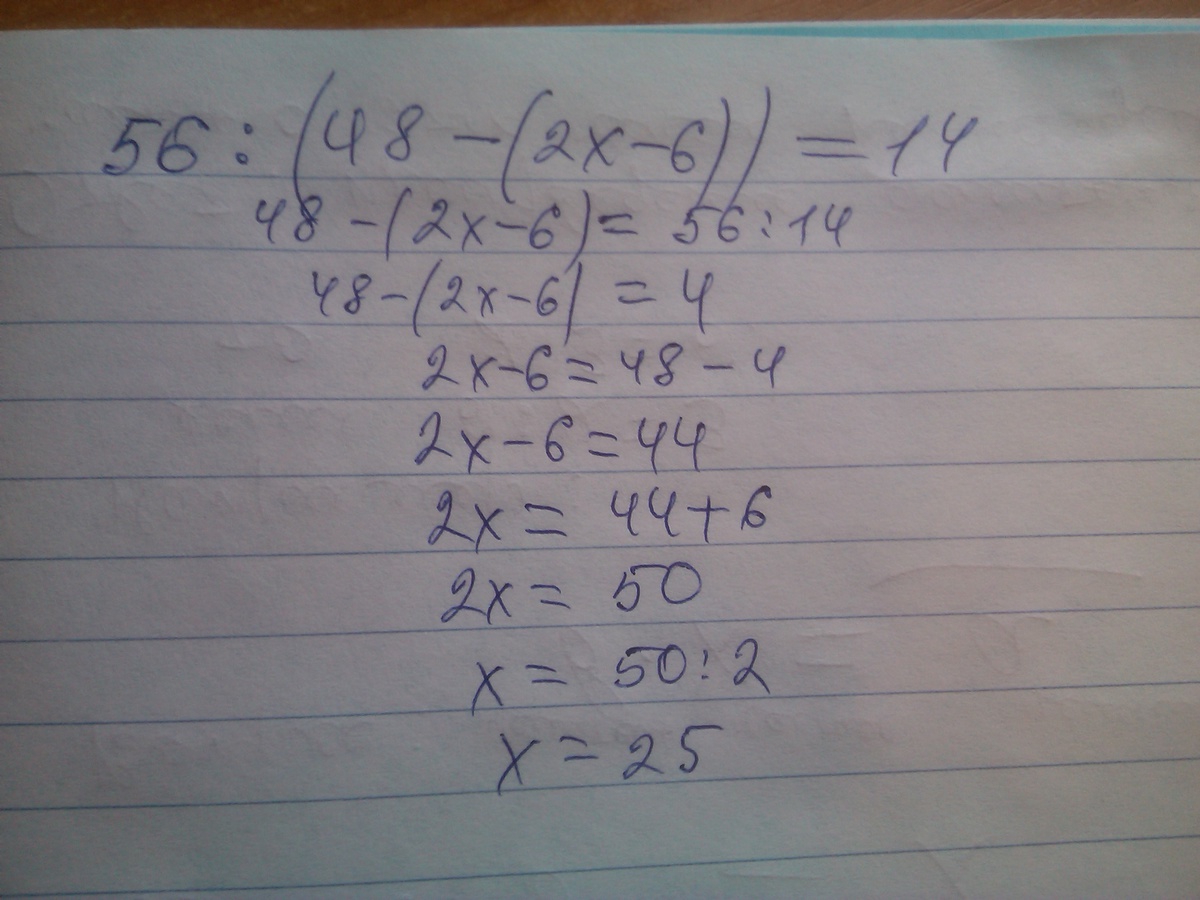 56 : (48 - (2x - 6)) = 14
48 - (2x - 6) = 56 : 14
48 - (2x - 6) = 4
2x - 6 = 48 - 4
2x - 6 = 44
2x = 44 + 6
2x = 50
x = 50 : 2
x = 25